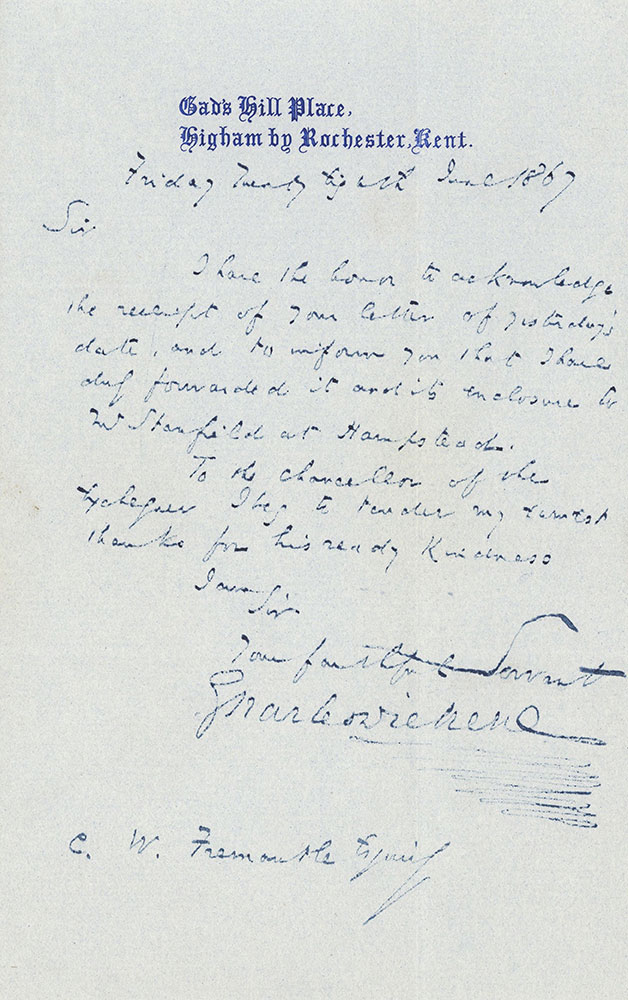 Gad's Hill Place,
Higham by Rochester, Kent.
Friday Twenty Eighth June 1867
Sir
I have the honor to acknowledge
the receipt of your letter of yesterday's
date, and to inform you that I have
duly forwarded it and its enclosure to
Mr Stanfield at Hampstead.
To the Chancellor of the
Exchequer I beg to tender my earnest
thanks for his ready kindness
I am
Sir
Your faithful Servant
Charles Dickens
C. W. Fremantle Esquire